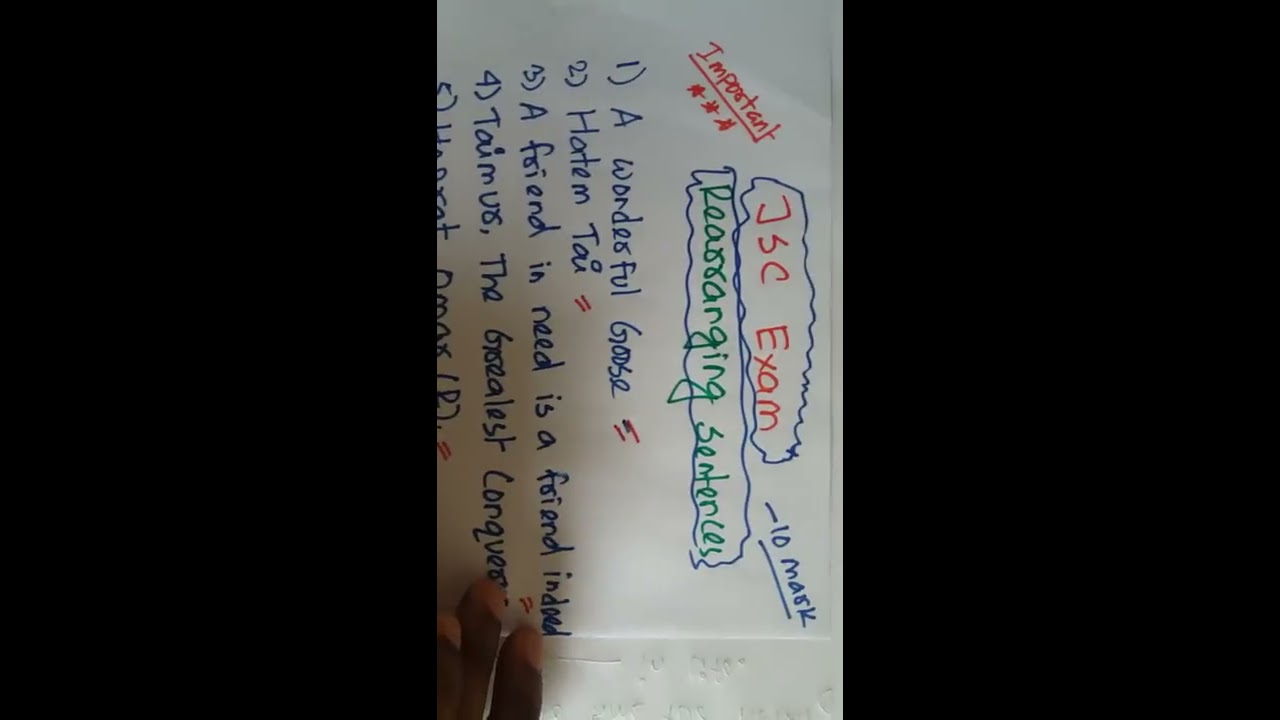 Important
***
JSC Exam
-10 mark
Rearranging sentences
1) A wonderful Goose =
2) Hatem Tai =
3) A friend in need is a friend indeed =
4) Taimur, The Grealest Conqueror
5) Hazrat Omar (R). =